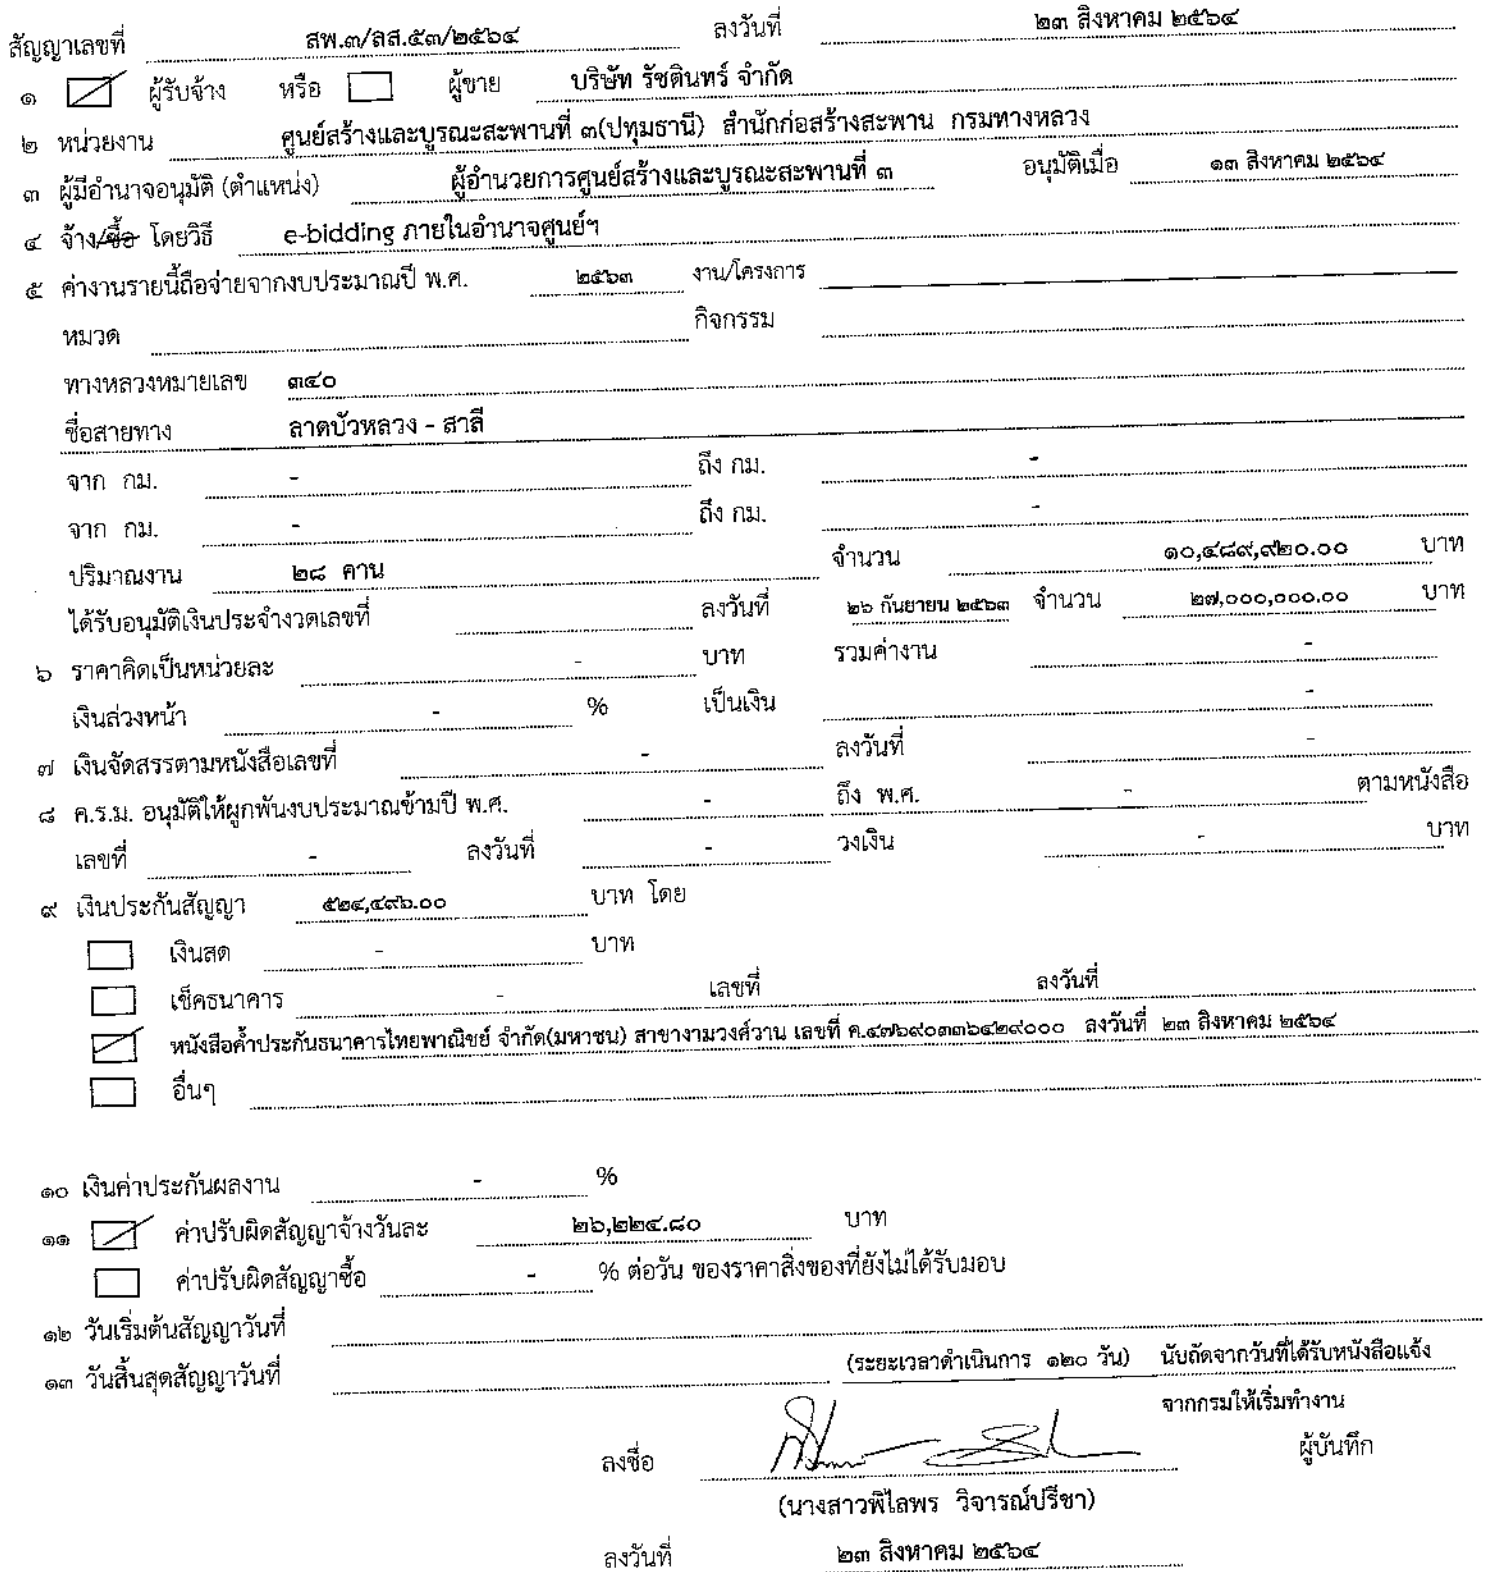 สัญญาเลขที่ สพ.๓/ลส.๕๓/๒๕๖๔ ลงวันที่ ๒๓ สิงหาคม ๒๕๖๔
๑ ผู้รับจ้าง หรือ ผู้ขาย บริษัท รัชตินทร์ จำกัด
๒ หน่วยงาน ศูนย์สร้างและบูรณะสะพานที่ ๓(ปทุมธานี) สำนักก่อสร้างสะพาน กรมทางหลวง
๓ ผู้มีอำนาจอนุมัติ (ตำแหน่ง) ผู้อำนวยการศูนย์สร้างและบูรณะสะพานที่ ๓ อนุมัติเมื่อ ๑๓ สิงหาคม ๒๕๖๔
๔ จ้าง/ซื้อ โดยวิธี e-bidding ภายในอำนาจศูนย์ฯ
๕ ค่างานรายนี้ถือจ่ายจากงบประมาณปี พ.ศ. ๒๕๖๓ งาน/โครงการ
หมวด กิจกรรม
ทางหลวงหมายเลข ๓๔๐
ชื่อสายทาง ลาดบัวหลวง - สาลี
จาก กม. - ถึง กม. -
จาก กม. - ถึง กม. -
ปริมาณงาน ๒๘ คาน จำนวน ๑๐,๔๘๙,๙๒๐.๐๐ บาท
ได้รับอนุมัติเงินประจำงวดเลขที่ ลงวันที่ ๒๖ กันยายน ๒๕๖๓ จำนวน ๒๗,๐๐๐,๐๐๐.๐๐ บาท
๖ ราคาคิดเป็นหน่วยละ - บาท รวมค่างาน -
เงินล่วงหน้า - % เป็นเงิน -
๗ เงินจัดสรรตามหนังสือเลขที่ - ลงวันที่ -
๘ ค.ร.ม. อนุมัติให้ผูกพันงบประมาณข้ามปี พ.ศ. - ถึง พ.ศ. - ตามหนังสือ
เลขที่ - ลงวันที่ - วงเงิน - บาท
๙ เงินประกันสัญญา ๕๒๔,๔๙๖.๐๐ บาท โดย
เงินสด - บาท
เช็คธนาคาร - เลขที่ ลงวันที่
หนังสือค้ำประกันธนาคารไทยพาณิชย์ จำกัด(มหาชน) สาขางามวงศ์วาน เลขที่ ค.๔๗๖๙๐๓๓๖๔๒๙๐๐๐ ลงวันที่ ๒๓ สิงหาคม ๒๕๖๔
อื่นๆ
๑๐ เงินค่าประกันผลงาน - %
๑๑ ค่าปรับผิดสัญญาจ้างวันละ ๒๖,๒๒๔.๘๐ บาท
ค่าปรับผิดสัญญาซื้อ - % ต่อวัน ของราคาสิ่งของที่ยังไม่ได้รับมอบ
๑๒ วันเริ่มต้นสัญญาวันที่
๑๓ วันสิ้นสุดสัญญาวันที่ (ระยะเวลาดำเนินการ ๑๒๐ วัน) นับถัดจากวันที่ได้รับหนังสือแจ้ง
จากกรมให้เริ่มทำงาน
ลงชื่อ ผู้บันทึก
(นางสาวพิไลพร วิจารณ์ปรีชา)
ลงวันที่ ๒๓ สิงหาคม ๒๕๖๔